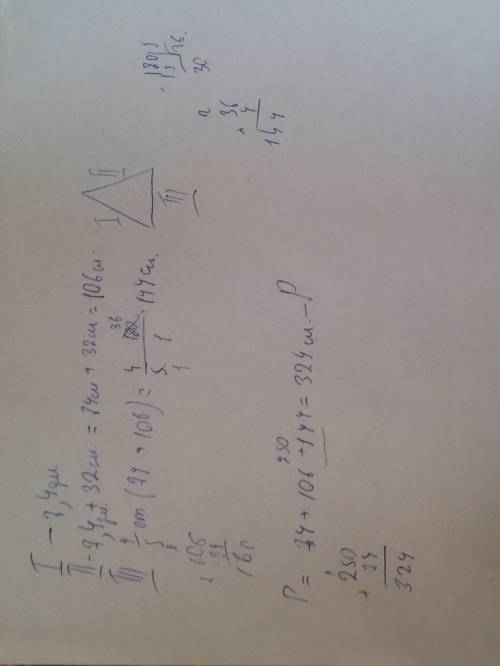 I - 7,4 дм
II - 7,4 дм + 32 см = 74 см + 32 см = 106 см.
III 4/5 от (74 + 106) = 4 · 180 36 / 5 1 · 1 = 144 см.
106
+ 74
180
I II
III
180 5
15 36
30
2
36
× 4
144
250
P = 74 + 106 + 144 = 324 см - P
1
250
+ 74
324